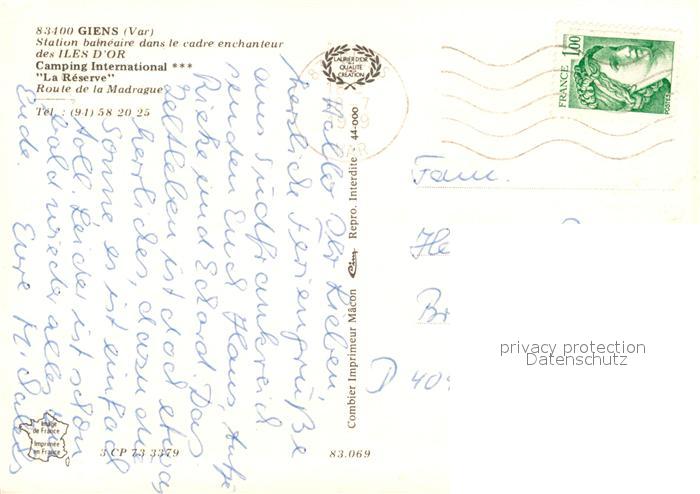 83400 GIENS (Var)
Station balnéaire dans le cadre enchanteur
des ILES D'OR
Camping International ***
"La Réserve"
Route de la Madrague
Tél : (94) 58 20 25
LAURIER D'OR
DE
QUALITÉ
CRÉATION
FRANCE 1,00
POSTES
Hallo Ihr Lieben,
herzliche Feriengrüße
aus Südfrankreich
senden Euch Hans, Antje
Rieke und Eckard. Das
Zeltleben ist doch etwas
herrliches, dazu die
Sonne, es ist einfach
toll. Leider ist schon
bald wieder alles zu
Ende. Eure
Combier Imprimeur Mâcon Cim Repro. Interdite 44-000
Fam.
He
Br
D 409
privacy protection
Datenschutz
Image
de France
Imprimée
en France
3 CP 73 3379
83.069